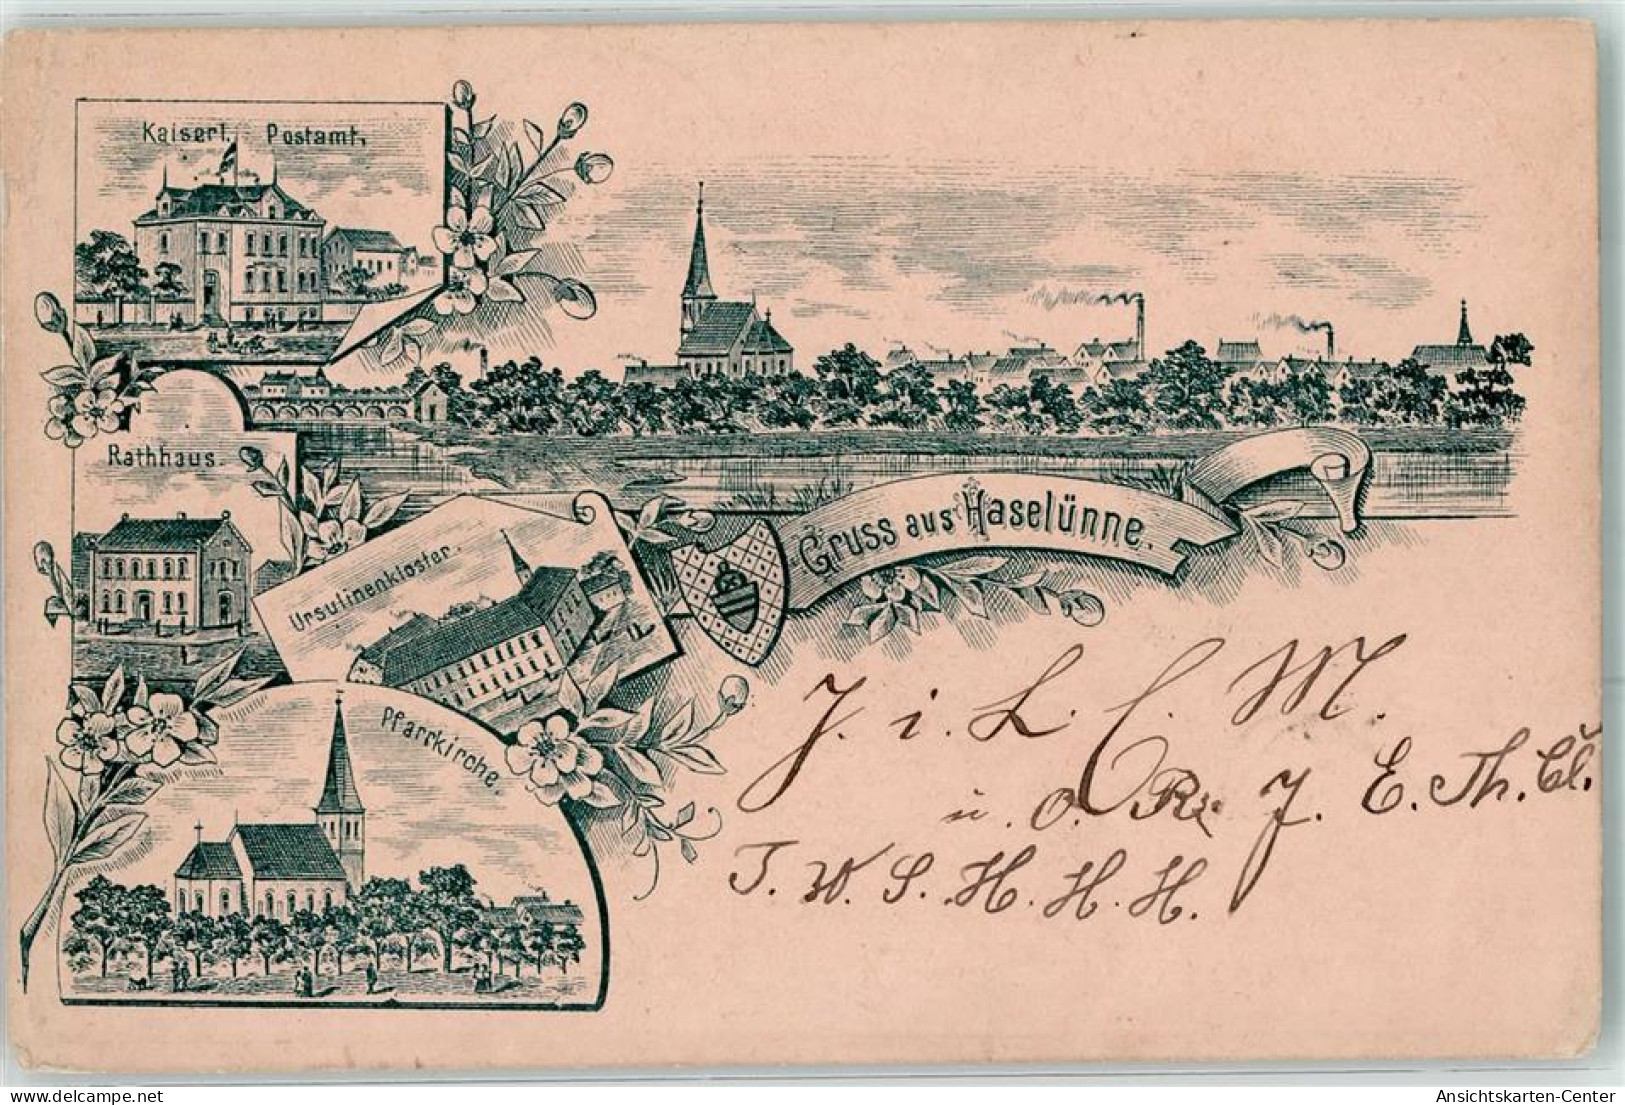 Kaiserl. Postamt,
Rathhaus.
Ursulinenkloster.
Gruss aus Haselünne.
Pfarrkirche.
J. i. L. C. M.
u. O. R. J. E. Th. Cl.
J. W. S. H. H. H.
Ansichtskarten-Center